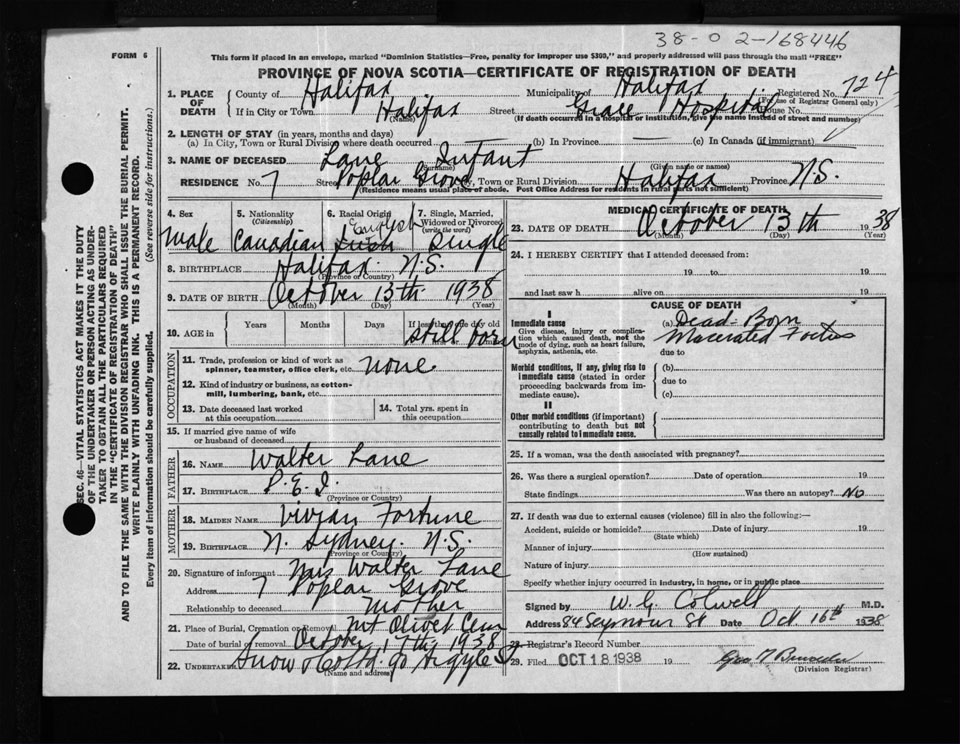 38-0 2-168446
FORM 6
This form if placed in an envelope, marked "Dominion Statistics—Free, penalty for improper use $300," and properly addressed will pass through the mail "FREE"
PROVINCE OF NOVA SCOTIA—CERTIFICATE OF REGISTRATION OF DEATH
1. PLACE OF DEATH County of Halifax Municipality of Halifax Registered No. 724
(For use of Registrar General only)
If in City or Town Halifax Street Grace Hospital House No.
(Name) (If death occurred in a hospital or institution, give the name instead of street and number)
2. LENGTH OF STAY (in years, months and days)
(a) In City, Town or Rural Division where death occurred (b) In Province (c) In Canada (if immigrant)
3. NAME OF DECEASED Lane Infant
(Surname) (Given name or names)
RESIDENCE No. 7 Street Poplar Grove City, Town or Rural Division Halifax Province N.S.
(Residence means usual place of abode. Post Office Address for residents in rural parts not sufficient)
4. Sex 5. Nationality 6. Racial Origin 7. Single, Married, Widowed or Divorced
(Citizenship) (write the word)
Male Canadian Irish Single
8. BIRTHPLACE Halifax N.S.
(Province or Country)
9. DATE OF BIRTH October 13th 1938
(Month) (Day) (Year)
10. AGE in Years Months Days If less than one day old
Still born
OCCUPATION
11. Trade, profession or kind of work as spinner, teamster, office clerk, etc. none
12. Kind of industry or business, as cotton-mill, lumbering, bank, etc.
13. Date deceased last worked at this occupation 14. Total yrs. spent in this occupation
15. If married give name of wife or husband of deceased
FATHER
16. NAME Walter Lane
17. BIRTHPLACE P.E.I.
(Province or Country)
MOTHER
18. MAIDEN NAME Vivian Fortune
19. BIRTHPLACE N. Sydney. N.S.
(Province or Country)
20. Signature of informant Mrs Walter Lane
Address 7 Poplar Grove
Relationship to deceased Mother
21. Place of Burial, Cremation or Removal Mt Olivet Cem
Date of burial or removal October 17th 1938
22. UNDERTAKER Snow & Co Ltd. 90 Argyle St
(Name and address)
MEDICAL CERTIFICATE OF DEATH
23. DATE OF DEATH October 13th 1938
(Month) (Day) (Year)
24. I HEREBY CERTIFY that I attended deceased from:
19 to 19
and last saw h alive on 19
CAUSE OF DEATH
I
Immediate cause
Give disease, injury or complication which caused death, not the mode of dying, such as heart failure, asphyxia, asthenia, etc.
(a) Dead-Born
Macerated Foetus
due to
Morbid conditions, if any, giving rise to immediate cause (stated in order proceeding backwards from immediate cause).
(b)
due to
(c)
II
Other morbid conditions (if important) contributing to death but not causally related to immediate cause.
25. If a woman, was the death associated with pregnancy?
26. Was there a surgical operation? Date of operation 19
State findings Was there an autopsy? No
27. If death was due to external causes (violence) fill in also the following:—
Accident, suicide or homicide? Date of injury 19
(State which)
Manner of injury
(How sustained)
Nature of injury
Specify whether injury occurred in industry, in home, or in public place
Signed by W. G. Colwell M.D.
Address 84 Seymour St Date Oct 16th 1938
28. Registrar's Record Number
29. Filed OCT 18 1938 19
(Division Registrar)
SEC. 46—VITAL STATISTICS ACT MAKES IT THE DUTY
OF THE UNDERTAKER OR PERSON ACTING AS UNDER-
TAKER TO OBTAIN ALL THE PARTICULARS REQUIRED
IN THE "CERTIFICATE OF REGISTRATION OF DEATH"
AND TO FILE THE SAME WITH THE DIVISION REGISTRAR WHO SHALL ISSUE THE BURIAL PERMIT.
WRITE PLAINLY WITH UNFADING INK. THIS IS A PERMANENT RECORD.
Every item of information should be carefully supplied. (See reverse side for instructions.)